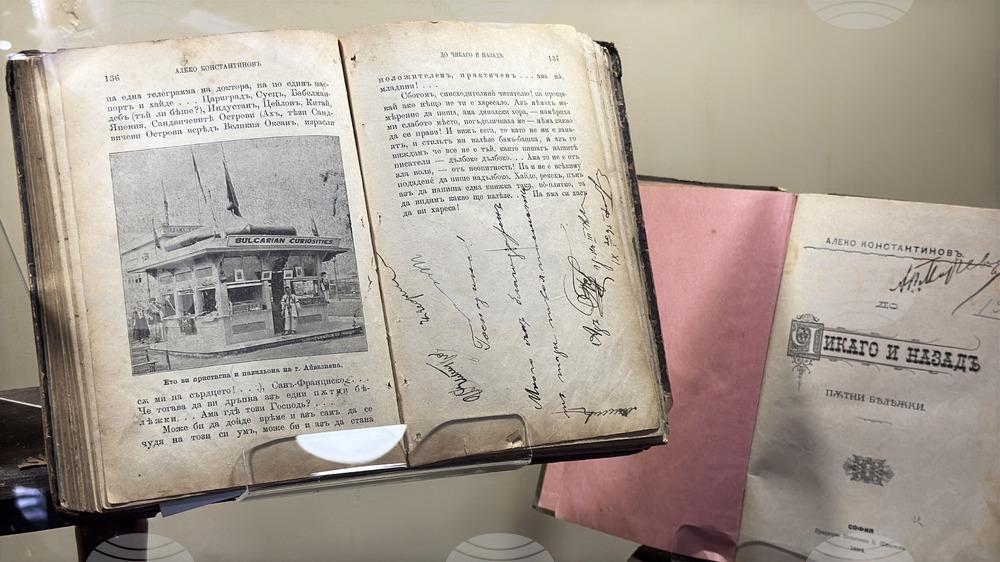 136
АЛЕКО КОНСТАНТИНОВЪ
на една телеграмма на доктора, па по единъ пас-
портъ и хайде . . , Цариградъ, Суецъ, Бабелман-
дебъ (тъй ли бѣше?), Индустанъ, Цейлонъ, Китай,
Япония, Сандвичевитѣ Острови (Ахъ, тѣзи Санд-
вичеви Острови всрѣдъ Великия Океанъ, израсли
BULGARIAN CURIOSITIES
Ето ви пристигна и павильона на г. Айвазиана.
сѫ ми на сърдцето! . . .), Санъ-Франциско . . . .
Че тогава да ви дръпна азъ едни пѫтни бѣ-
лѣжки. . . Ама гдѣ този Господь? . . .
Може би да дойде врѣме и азъ самъ да се
чудя на този си умъ, може би и азъ да стана
ДО ЧИКАГО И НАЗАДЪ
137
положителенъ, практиченъ . . . ама на,
младини! . . .
Сбогомъ, снисходителний читателю! на проща-
вай ако нѣщо не ти е харесало. Азъ нѣмахъ на-
мѣрение да пиша, ама дяволски хора, — намѣриха
ми слабото мѣсто, погъделичкаха ме — нѣма какво
да се прави! И вежъ сега, то като не ми е зана-
ятъ, и стильтъ ми излѣзе бамъ-башка, и азъ го
виждамъ че все не е тъй, както пишатъ нашитѣ
писатели — дълбоко дълбоко. . . Ама то не е отъ
зла воля, — отъ неопитность! На и не е всѣкиму
подаденъ да пише надълбоко. Хайде, рекохъ, пъкъ
азъ да напиша една книжка тъй, по-плитко, та
да видимъ какво ще излѣзе. . . Па има си хасъ
да ви хареса!
Господинъ!
Много съмъ благодаренъ
АЛЕКО КОНСТАНТИНОВЪ
ДО
ЧИКАГО И НАЗАДЪ
ПѪТНИ БѢЛѢЖКИ.
СОФИЯ